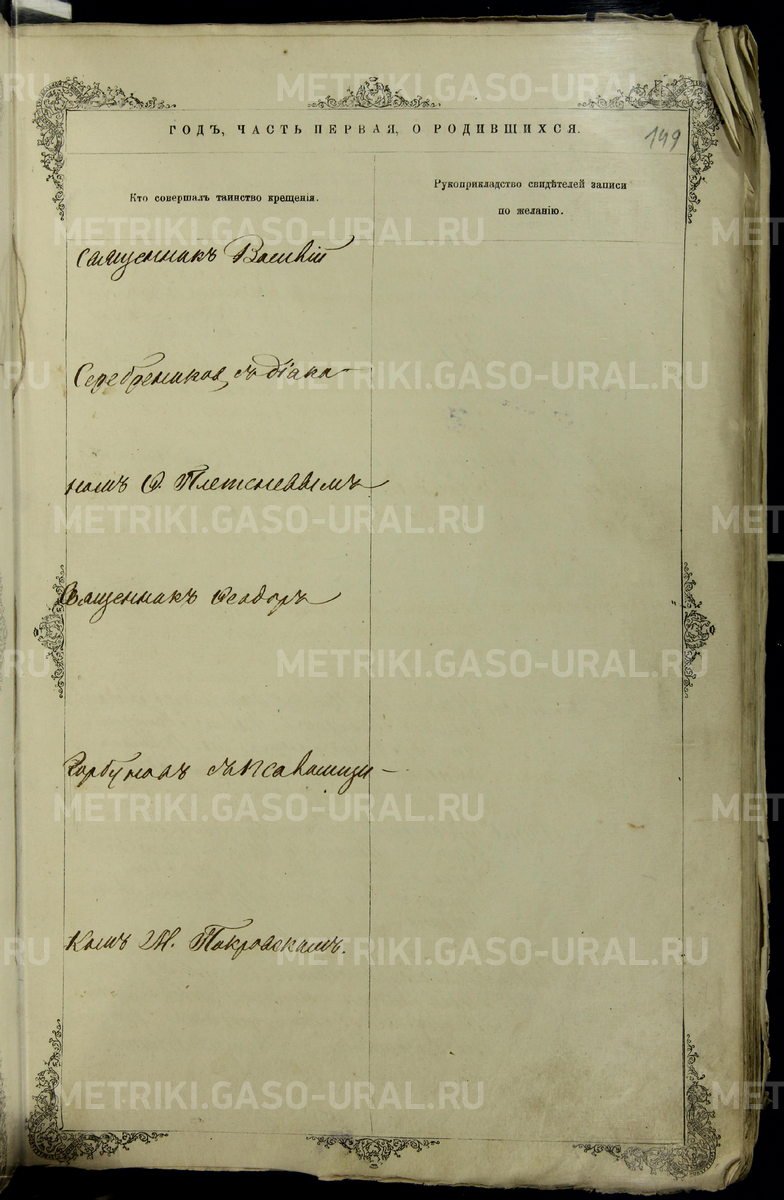 ГОДЪ, ЧАСТЬ ПЕРВАЯ, О РОДИВШИХСЯ.
149
Кто совершалъ таинство крещенія.
Рукоприкладство свидѣтелей записи
по желанію.
Священникъ Василій
Серебрениковъ съ діако-
номъ Ѳ. Плетеневымъ
Священникъ Ѳеодоръ
Горбуновъ съ псаломщи-
комъ М. Покровскимъ.
METRIKI.GASO-URAL.RU